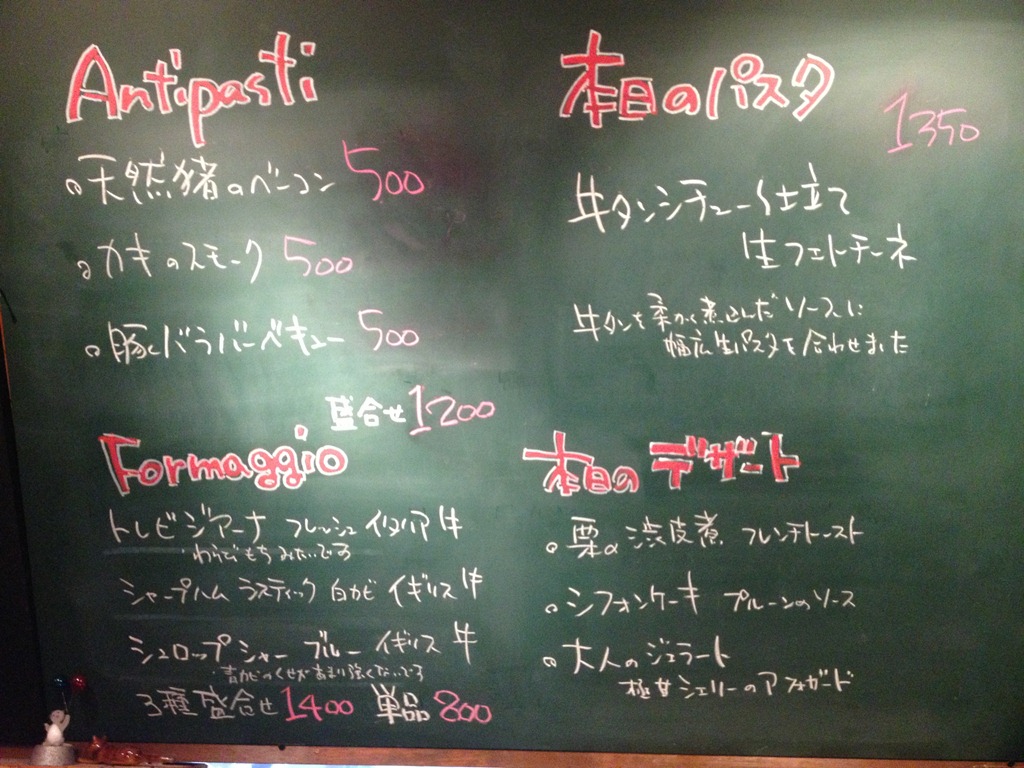 Antipasti
天然猪のベーコン 500
カキのスモーク 500
豚バラバーベキュー 500
盛合せ 1200
Formaggio
トレビジアーナ フレッシュ イタリア 牛
わらびもちみたいです
シャープハム ラスティック 白カビ イギリス 牛
シュロップシャー ブルー イギリス 牛
青カビのくせがあまり強くないです
3種盛合せ 1400 単品 800
本日のパスタ
1350
牛タンシチュー仕立て
生フェトチーネ
牛タンを柔かく煮込んだソースに
幅広生パスタを合わせました
本日のデザート
栗の渋皮煮 フレンチトースト
シフォンケーキ プルーンのソース
大人のジェラート
極甘シェリーのアフォガード